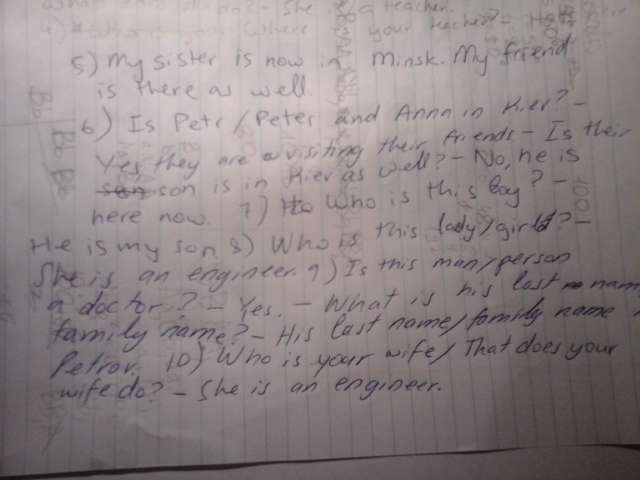 do? - She is a teacher.
4) Where your teacher? -
5) My sister is now in Minsk. My friend
is there as well.
6) Is Petr/Peter and Anna in Kiev? -
Yes, they are visiting their friends - Is their
son is in Kiev as well? - No, he is
here now. 7) Who is this boy? -
He is my son. 8) Who is this lady/girl? -
She is an engineer. 9) Is this man/person
a doctor? - Yes. - What is his last name
family name? - His last name/family name
Petrov. 10) Who is your wife/That does your
wife do? - She is an engineer.